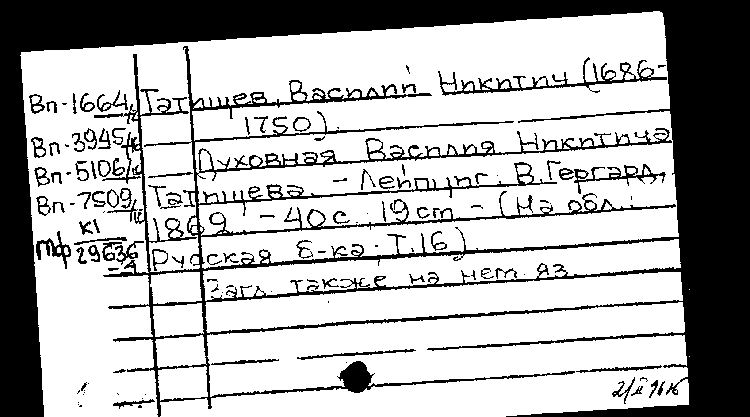 Вп-1664/к Татищев, Василий Никитич (1686-
1750).
Вп-3945/к
Духовная Василия Никитича
Вп-5106/к
Татищева. - Лейпциг: В. Гергард,
Вп-7509/к
1869. - 40 с., 19 cm - (На обл.:
К1
Мф 29636
Русская б-ка; Т. 16).
-А
Загл. также на нем. яз.